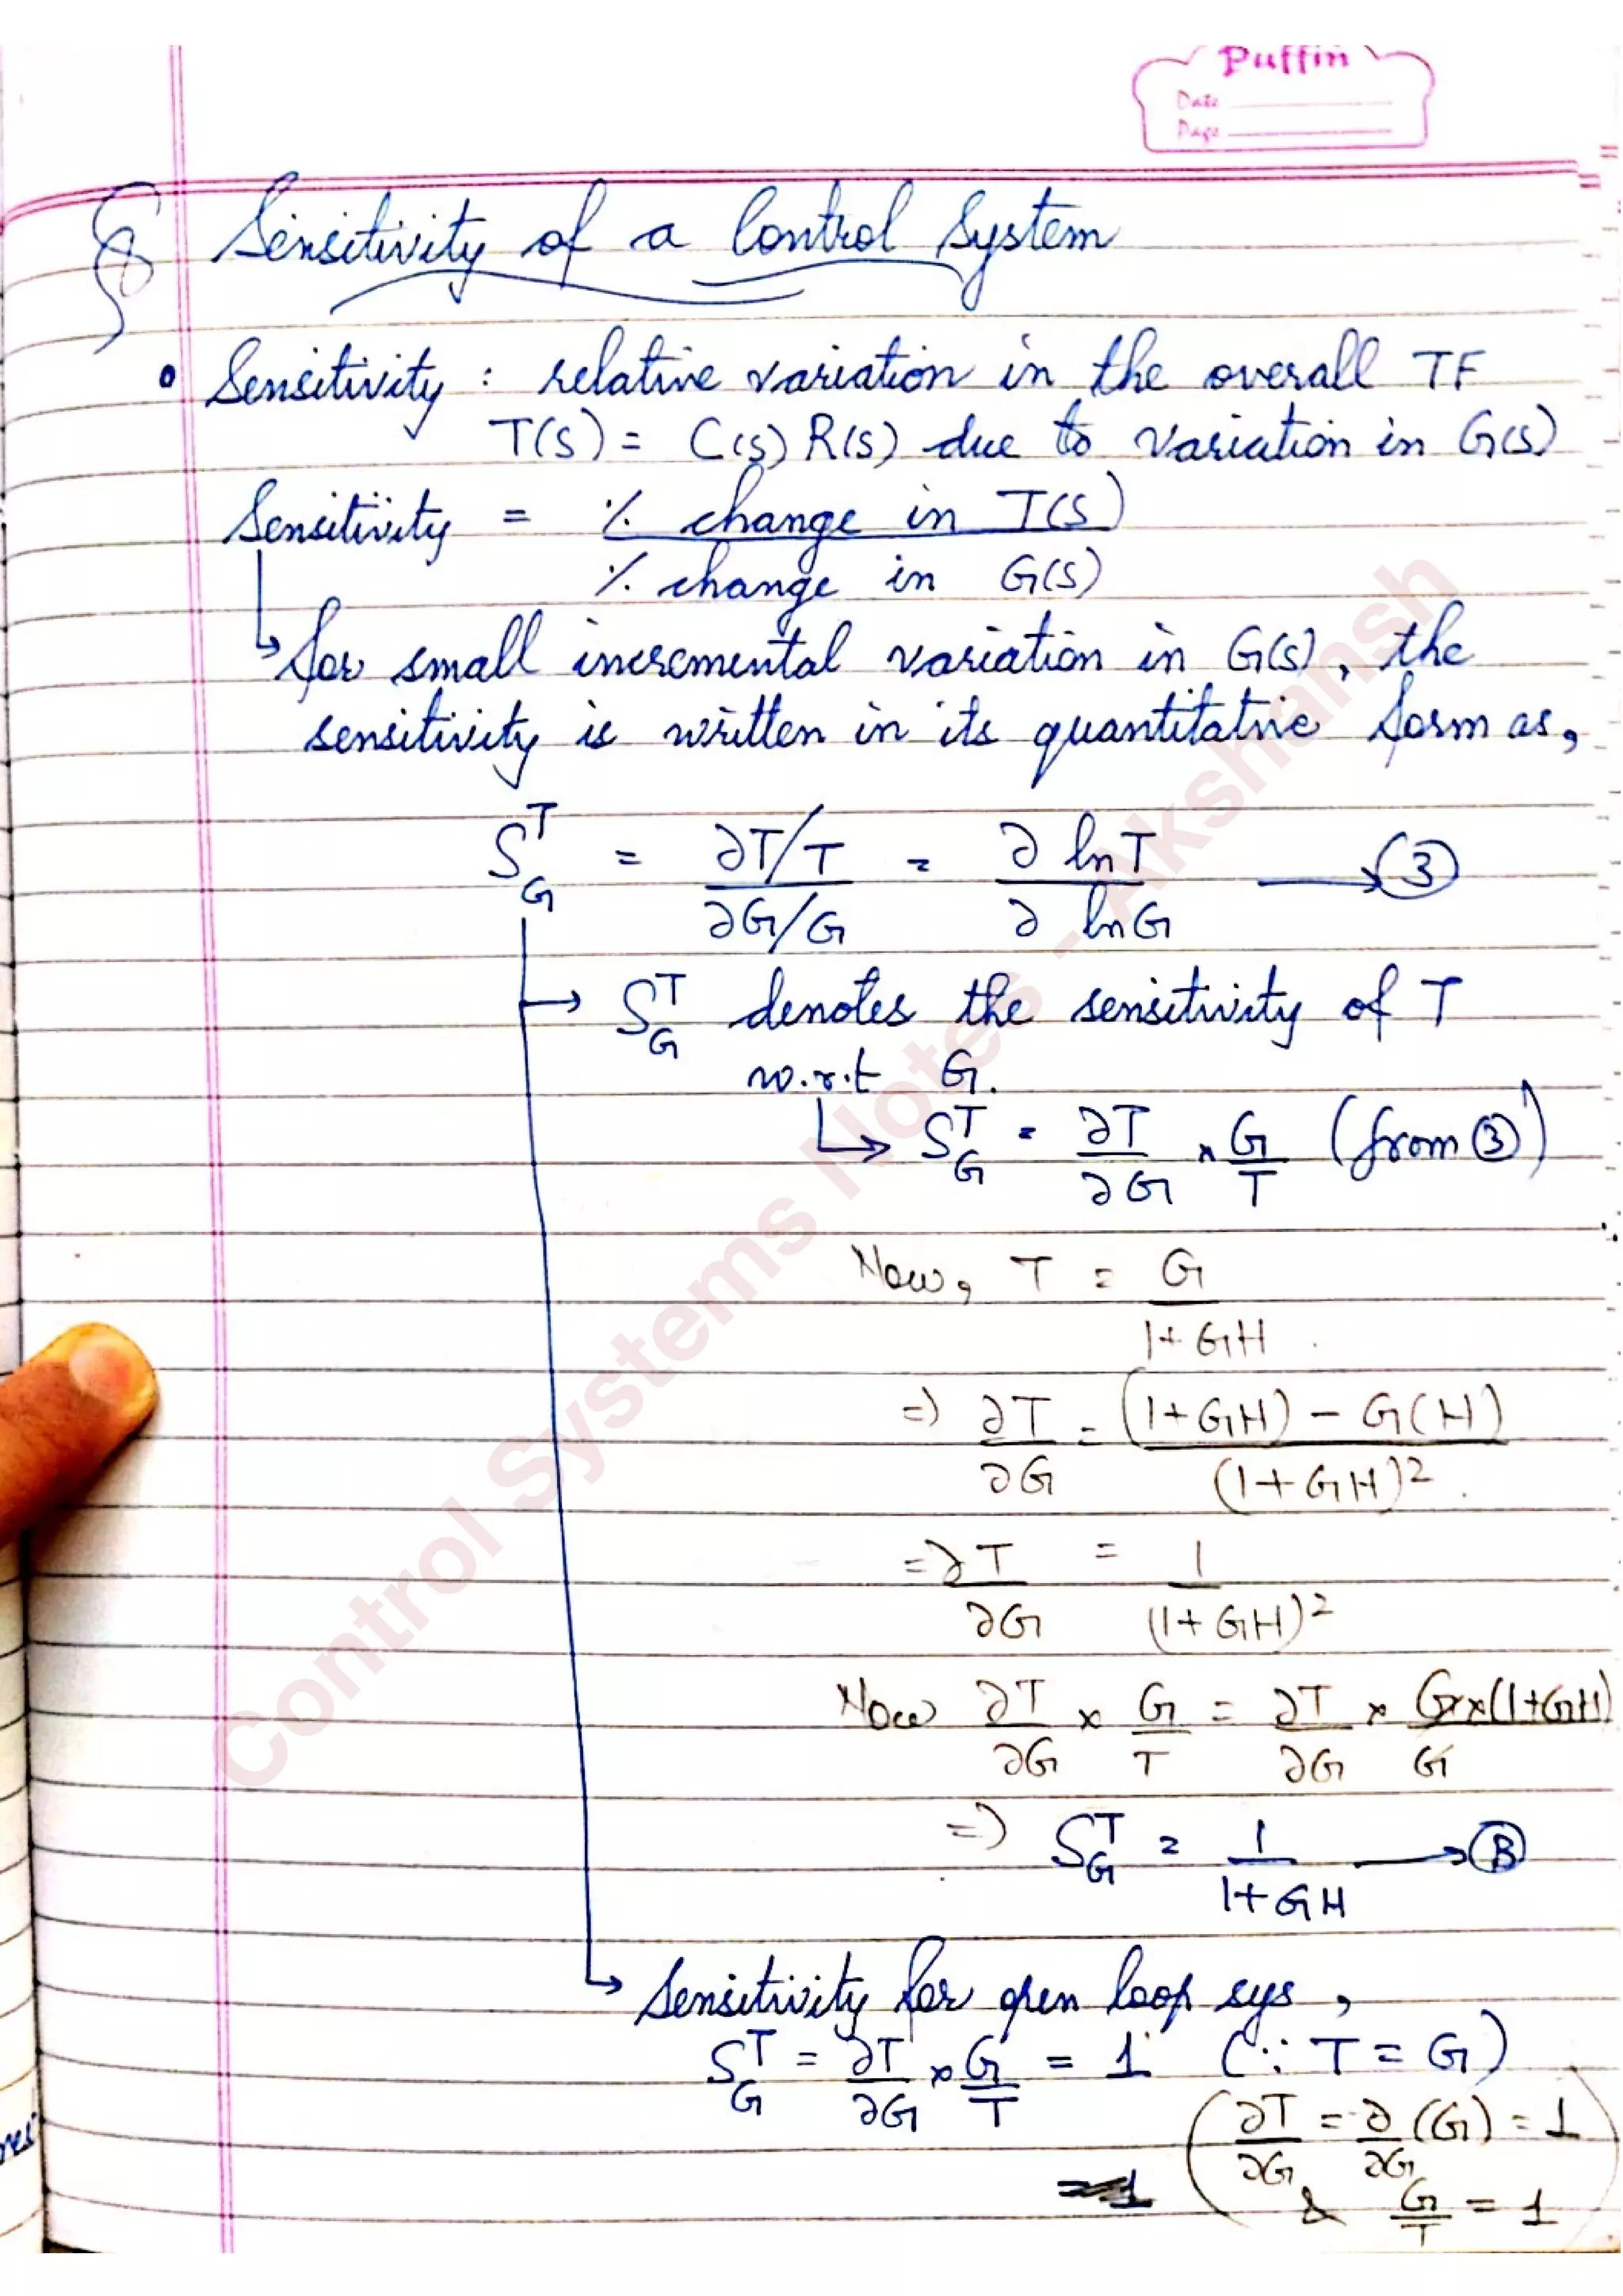 Puffin
Date
Page
§ Sensitivity of a Control System
• Sensitivity : relative variation in the overall TF
T(s) = C(s) R(s) due to variation in G(s)
Sensitivity = % change in T(s)
% change in G(s)
↳ for small incremental variation in G(s), the
sensitivity is written in its quantitatve form as,
S^T_G = ∂T/T / ∂G/G = ∂ lnT / ∂ lnG → ③
→ S^T_G denotes the sensitivity of T
w.r.t G.
↳ S^T_G = ∂T/∂G × G/T (from ③)
Now, T = G / 1+GH
=> ∂T/∂G = (1+GH) - G(H) / (1+GH)²
=> ∂T/∂G = 1 / (1+GH)²
Now ∂T/∂G × G/T = ∂T/∂G × G×(1+GH) / G
=> S^T_G = 1 / 1+GH → Ⓑ
↳ Sensitivity for open loop sys,
S^T_G = ∂T/∂G × G/T = 1 (∵ T = G)
(∂T/∂G = ∂/∂G (G) = 1
= 1
& G/T = 1)
Control Systems Notes - Akshansh